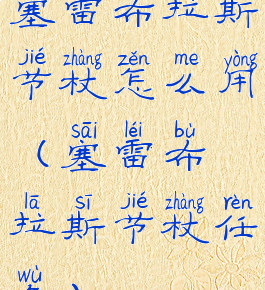 塞雷布拉斯
jié zhàng zěn me yòng
节杖怎么用
sāi léi bù
(塞雷布
lā sī jié zhàng rèn
拉斯节杖任
wù